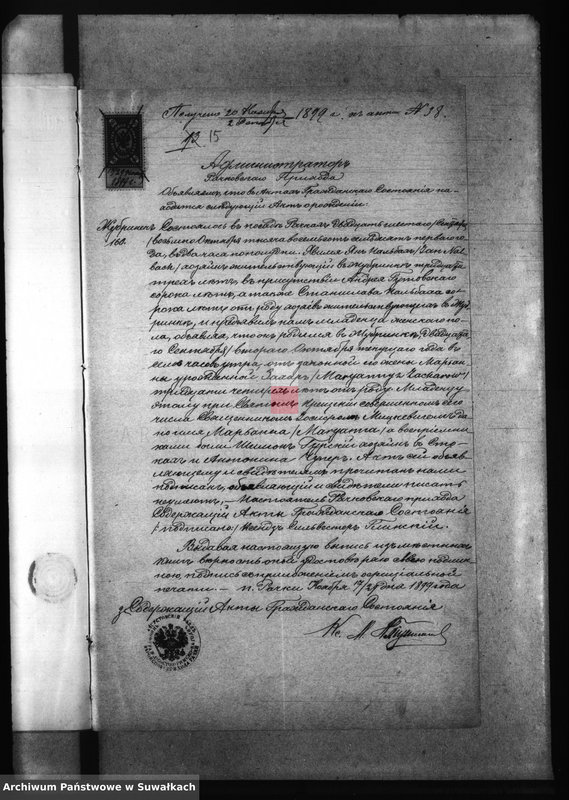 Получено 20 Ноября / 2 Декабря 1899 г. къ акт № 38.
15
Администраторъ
Рачковскаго Прихода
Объявляетъ, что въ Актахъ Гражданскаго Состоянія на-
ходится слѣдующій Актъ о рожденіи:
Жубринекъ
160.
Состоялось въ посадѣ Рачкахъ двадцать шестаго Сентября
восьмаго Октября тысяча восемьсотъ семьдесятъ перваго го-
да, въ два часа пополудни. Явился Янъ Кальбахъ /Jan Kal-
bach/ хозяинъ жительствующій въ Жубринкѣ тридцати
трехъ лѣтъ въ присутствіи Андрея Гутовскаго
сорока лѣтъ, а также Станислава Кальбаха со-
рока лѣтъ отъ роду хозяевъ жительствующихъ въ Жуб-
ринкѣ, и предъявилъ намъ младенца женскаго по-
ла, объявляя, что онъ родился въ Жубринкѣ двадцата-
го Сентября / втораго Октября текущаго года въ
часовъ утра, отъ законной его жены Марьян-
ны урожденной
тридцати четырехъ лѣтъ отъ роду. Младенцу
этому при Святомъ Крещеніи совершенномъ сего
числа Священникомъ да-
но имя Марьянна /Maryanna/ а воспріемни-
ками были Шимонъ Гурскій хозяинъ въ
и Антонина Актъ сей объяв-
ляющему и свидѣтелямъ прочитанъ нами
подписанъ, объявляющій и свидѣтели писать
неумѣютъ. — Настоятель Рачковскаго прихода
Содержащій Акты Гражданскаго Состоянія
/подписано/ Ксендзъ Сильвестръ Глинскій.
Выдавая настоящую выпись изъ мѣстныхъ
книгъ вѣрность оной удостовѣряю своею подпи-
сью съ приложеніемъ оффиціальной
печати — п. Рачки Ноября 17/29 дня 1899 года
за Содержащій Акты Гражданскаго Состоянія
Кс. М.
Archiwum Państwowe w Suwałkach